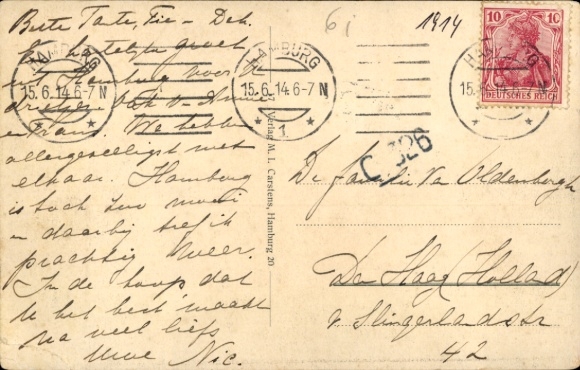 Beste Tante, Fie - Deh.
hartelijke groet
Hamburg voor
drietjes
Frans. We hebben
allergezelligst met
elkaar. Hamburg
is toch zoo mooi
en daarbij tref ik
prachtig weer.
In de hoop dat
U het best maakt
na veel liefs
Uwe Nic.
6 i
1914
HAMBURG
15.6.14.6-7 N
* 1 *
HAMBURG
15.6.14.6-7 N
* 1 *
HAMBURG
10 10
DEUTSCHES REICH
C 326
Verlag M. L. Carstens, Hamburg 20
De familie Van Oldenborgh
Den Haag (Holland)
v. Slingerlandstr
42